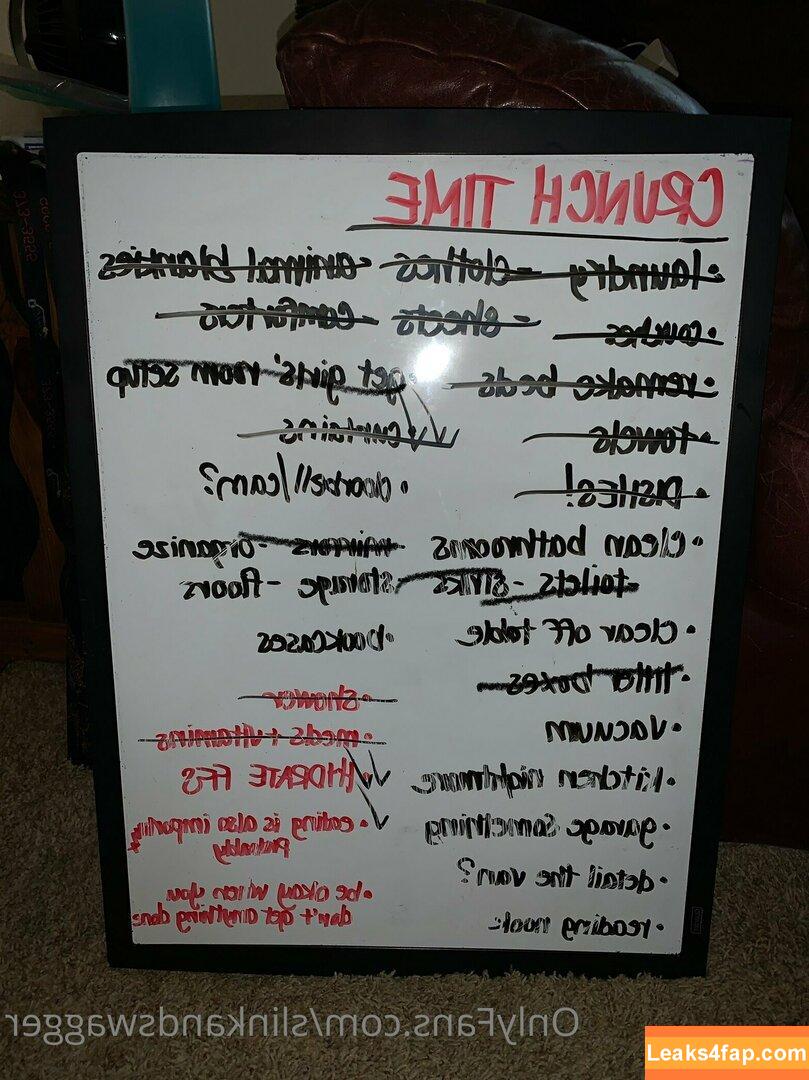 CRUNCH TIME
• laundry - clothes - animal blankies
• couches - sheets - comforters
• remake beds
• get girls' room setup
• towels
✓ curtains
• DISHES!
• doorbell/cam?
• clean bathrooms
mirrors - organize
toilets - sinks
storage - floors
• clear off table
• bookcases
• litter boxes
• vacuum
• kitchen nightmare
• garage something
• detail the van?
• reading nook
• shower
• meds + vitamins
• HYDRATE FFS
• eating is also important
probably
• be okay when you
don't get anything done
OnlyFans.com/slinkandswagger
Leaks4fap.com